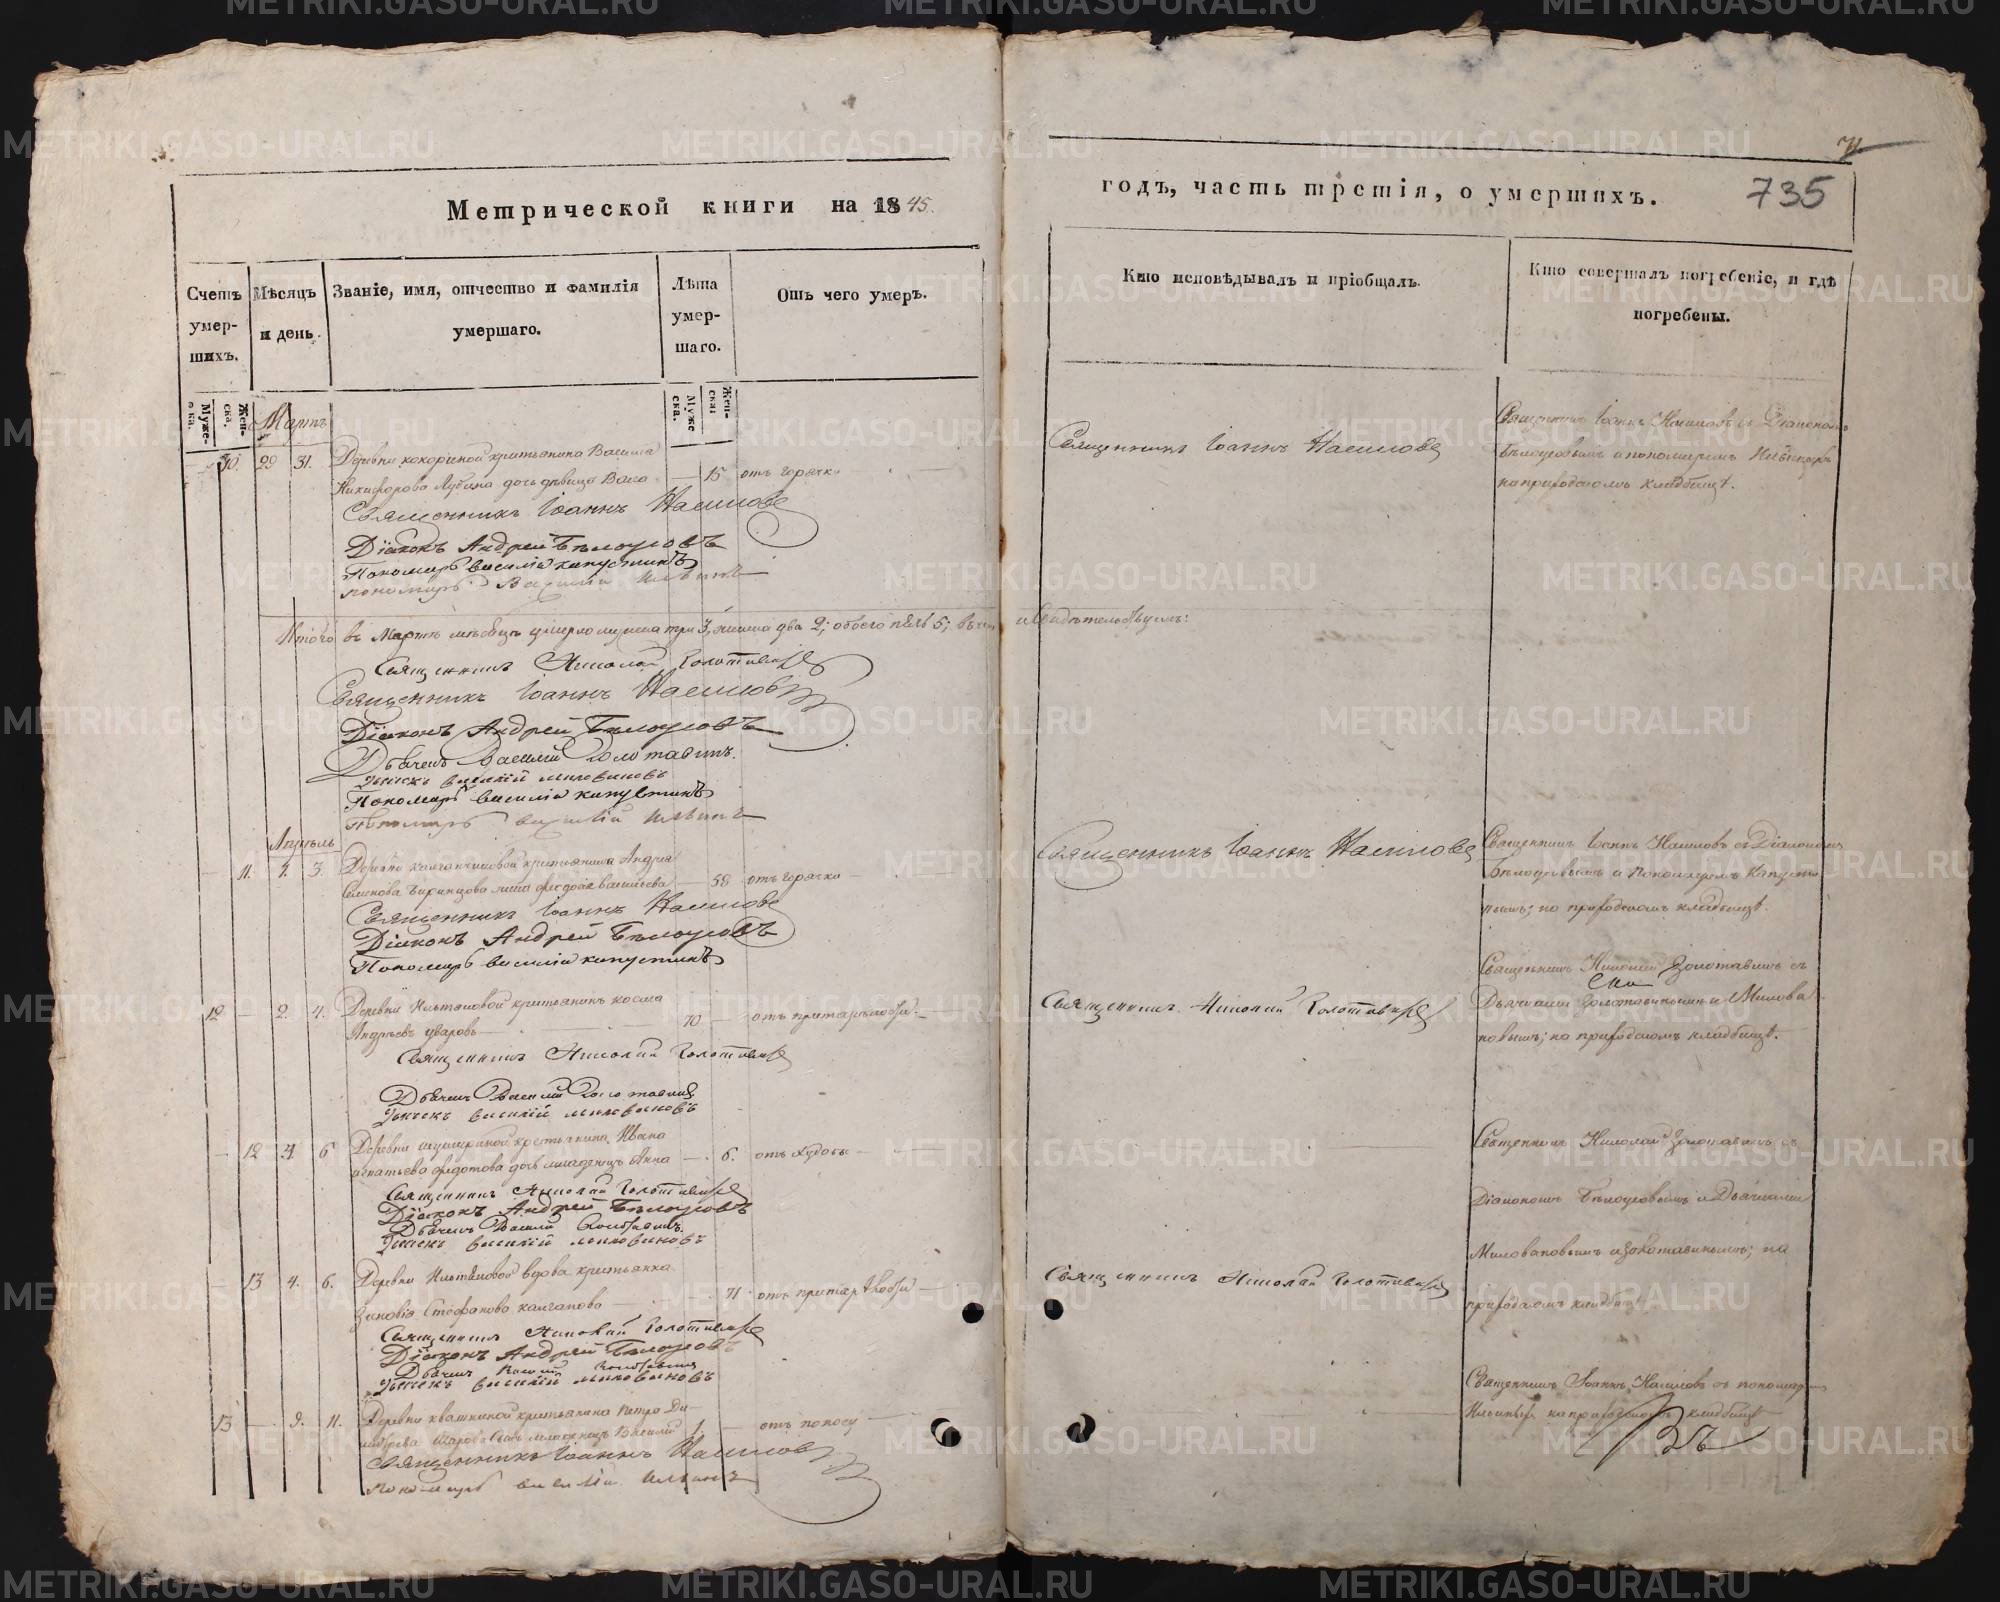 Метрической книги на 1845.
Счетъ умершихъ.
Мѣсяцъ и день.
Званіе, имя, отчество и фамилія умершаго.
Лѣта умершаго.
Отъ чего умеръ.
Мужеска.
Женска.
Мужеска.
Женска.
Мартъ
10. 29 31. Деревни кокориной крестьянина Василья
Никифорова дочь дѣвица 15 отъ горячки
Священникъ Іоаннъ Насиловъ
Діаконъ Андрей Бѣлоусовъ
Пономарь василій капустинъ
пономарь Василій Ильинъ
Итого въ Мартѣ мѣсяцѣ умерло мужеска три 3, женска два 2; обоего полъ 5; въ чемъ и свидѣтельствуемъ:
Священникъ Николай Золотавинъ
Священникъ Іоаннъ Насиловъ
Діаконъ Андрей Бѣлоусовъ
Дьячекъ Василій Золотавинъ.
Дьячекъ василій миловановъ
Пономарь василій капустинъ
Пономарь василій Ильинъ
Апрѣль
11. 1. 3. Деревни крестьянина Андрея
Семенова жена васильева 58 отъ горячки
Священникъ Іоаннъ Насиловъ
Діаконъ Андрей Бѣлоусовъ
Пономарь василій капустинъ
12 2. 4. Деревни крестьянинъ косма
Андреевъ уваровъ 70 отъ престарѣлости.
Священникъ Николай Золотавинъ
Дьячекъ Василій Золотавинъ
Дьячекъ василій миловановъ
12 4 6 Деревни крестьянина Ивана
игнатьева федотова дочь младенецъ Анна 6. отъ худобы
Священникъ Николай Золотавинъ
Діаконъ Андрей Бѣлоусовъ
Дьячекъ Василій Золотавинъ.
Дьячекъ василій миловановъ
13 4. 6. Деревни вдова крестьянка
Зиновія Стефанова калганова 71 отъ престарѣлости
Священникъ Николай Золотавинъ
Діаконъ Андрей Бѣлоусовъ
Дьячекъ Василій Золотавинъ
Дьячекъ василій миловановъ
13 9. 11. Деревни квашниной крестьянина Петра Ди-
митрева сынъ младенецъ Василій 1 отъ поносу
Священникъ Іоаннъ Насиловъ
пономарь василій Ильинъ
годъ, часть третія, о умершихъ.
735
Кто исповѣдывалъ и пріобщалъ.
Кто совершалъ погребеніе, и гдѣ погребены.
Священникъ Іоаннъ Насиловъ
Священникъ Іоаннъ Насиловъ съ Діакономъ
Бѣлоусовымъ и пономаремъ Ильинымъ
на приходскомъ кладбищѣ.
Священникъ Іоаннъ Насиловъ
Священникъ Іоаннъ Насиловъ съ Діакономъ
Бѣлоусовымъ и Пономаремъ Капусти-
нымъ; на приходскомъ кладбищѣ.
Священникъ Николай Золотавинъ
Священникъ Николай Золотавинъ съ
Дьячками Золотавинымъ и Милова-
новымъ; на приходскомъ кладбищѣ.
Священникъ Николай Золотавинъ съ
Діакономъ Бѣлоусовымъ и Дьячками
Миловановымъ и Золотавинымъ; на
приходскомъ кладбищѣ.
Священникъ Николай Золотавинъ
Священникъ Іоаннъ Насиловъ съ пономаремъ
Ильинымъ на приходскомъ кладбищѣ
METRIKI.GASO-URAL.RU